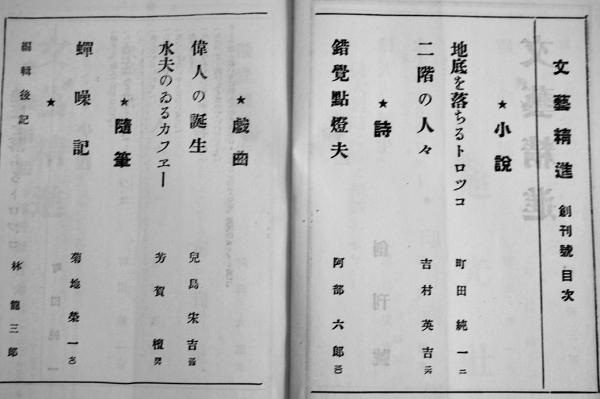 文藝精進 創刊號目次
★小說
地底を落ちるトロツコ 町田純一
二階の人々 吉村英吉
★詩
錯覺點燈夫 阿部六郎
★戲曲
偉人の誕生 兒島宋吉
水夫のゐるカフヱー 芳賀檀
★隨筆
蟬噪記 菊地榮一
★
編輯後記 林龍三郎